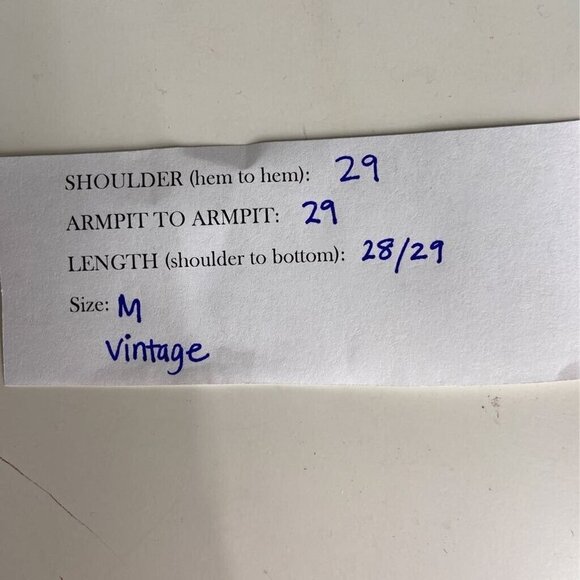 SHOULDER (hem to hem): 29
ARMPIT TO ARMPIT: 29
LENGTH (shoulder to bottom): 28/29
Size: M
Vintage